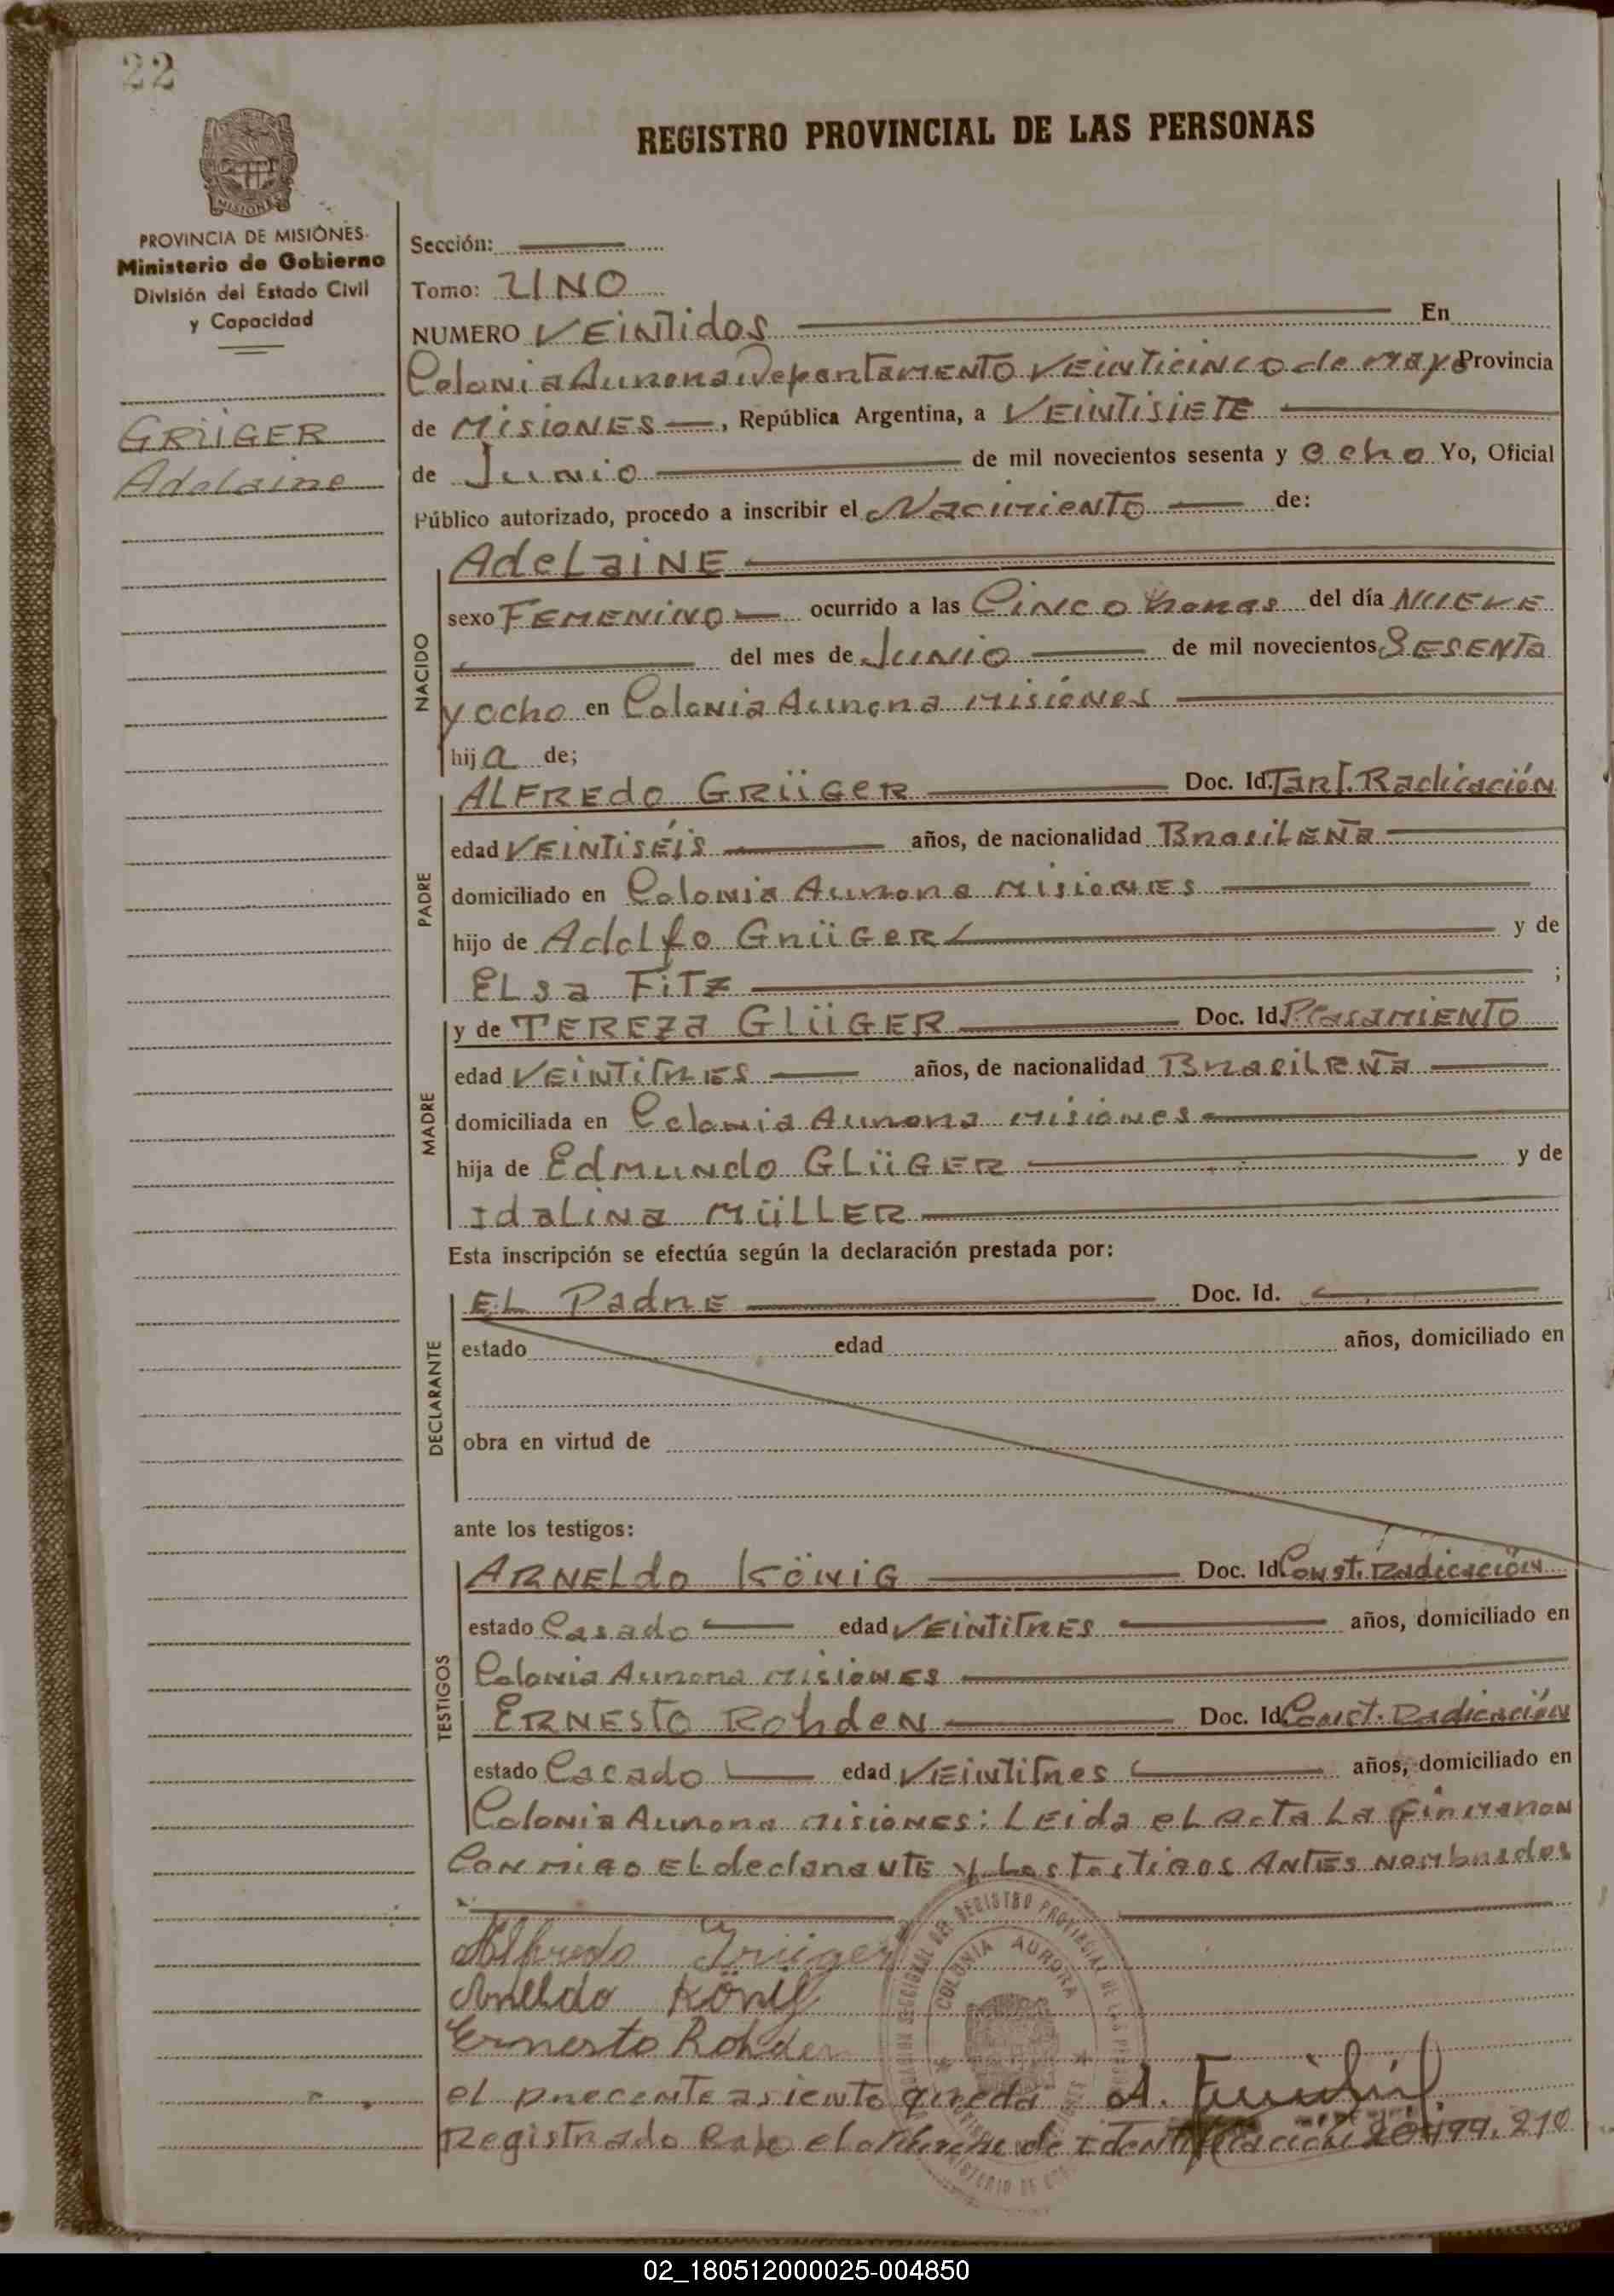 22
REGISTRO PROVINCIAL DE LAS PERSONAS
MISIONES
PROVINCIA DE MISIONES
Ministerio de Gobierno
División del Estado Civil
y Capacidad
GRÜGER
Adelaine
Sección:
Tomo: UNO
NUMERO VEINTIdos En
Colonia Aurora Departamento VEINTICINCO de mayo Provincia
de MISIONES, República Argentina, a VEINTISIETE
de Junio de mil novecientos sesenta y ocho Yo, Oficial
Público autorizado, procedo a inscribir el Nacimiento de:
NACIDO
AdeLaiNE
sexo FEMENINO ocurrido a las Cinco horas del día NUEVE
del mes de Junio de mil novecientos SESENTa
y ocho en Colonia Aurora Misiones
hija de;
PADRE
ALFREdo GRÜGER Doc. Id. Tarj. Radicación
edad VEINTISÉIS años, de nacionalidad BrasiLEÑa
domiciliado en Colonia Aurora MISIONES
hijo de AdoLfo GrüGER y de
ELsa FiTz ;
MADRE
y de TEREZa GLÜGER Doc. Id. P/CasaMIENTO
edad VEINTITRES años, de nacionalidad BrasiLEÑa
domiciliada en Colonia Aurora Misiones
hija de EdMundo GLÜGER y de
IdaLiNa MÜLLER
Esta inscripción se efectúa según la declaración prestada por:
DECLARANTE
EL PadrE Doc. Id.
estado edad años, domiciliado en
obra en virtud de
ante los testigos:
TESTIGOS
ARNELdo KÖNIG Doc. Id. Const. Radicación
estado Casado edad VEINTITRES años, domiciliado en
Colonia Aurora MISIONES
ERNESTO RohdeN Doc. Id. Const. Radicación
estado Casado edad VEINTITRES años, domiciliado en
Colonia Aurora MISIONES: LEida eL acta La firmaron
conmigo EL declarante y Los testigos ANTES Nombrados
Alfredo Grüger
Arneldo König
Ernesto Rohden
el precente asiento queda A.
Registrado Bajo el de Identificación 20.499.210
REGISTRO PROVINCIAL DE LAS
COLONIA AURORA
02_180512000025-004850